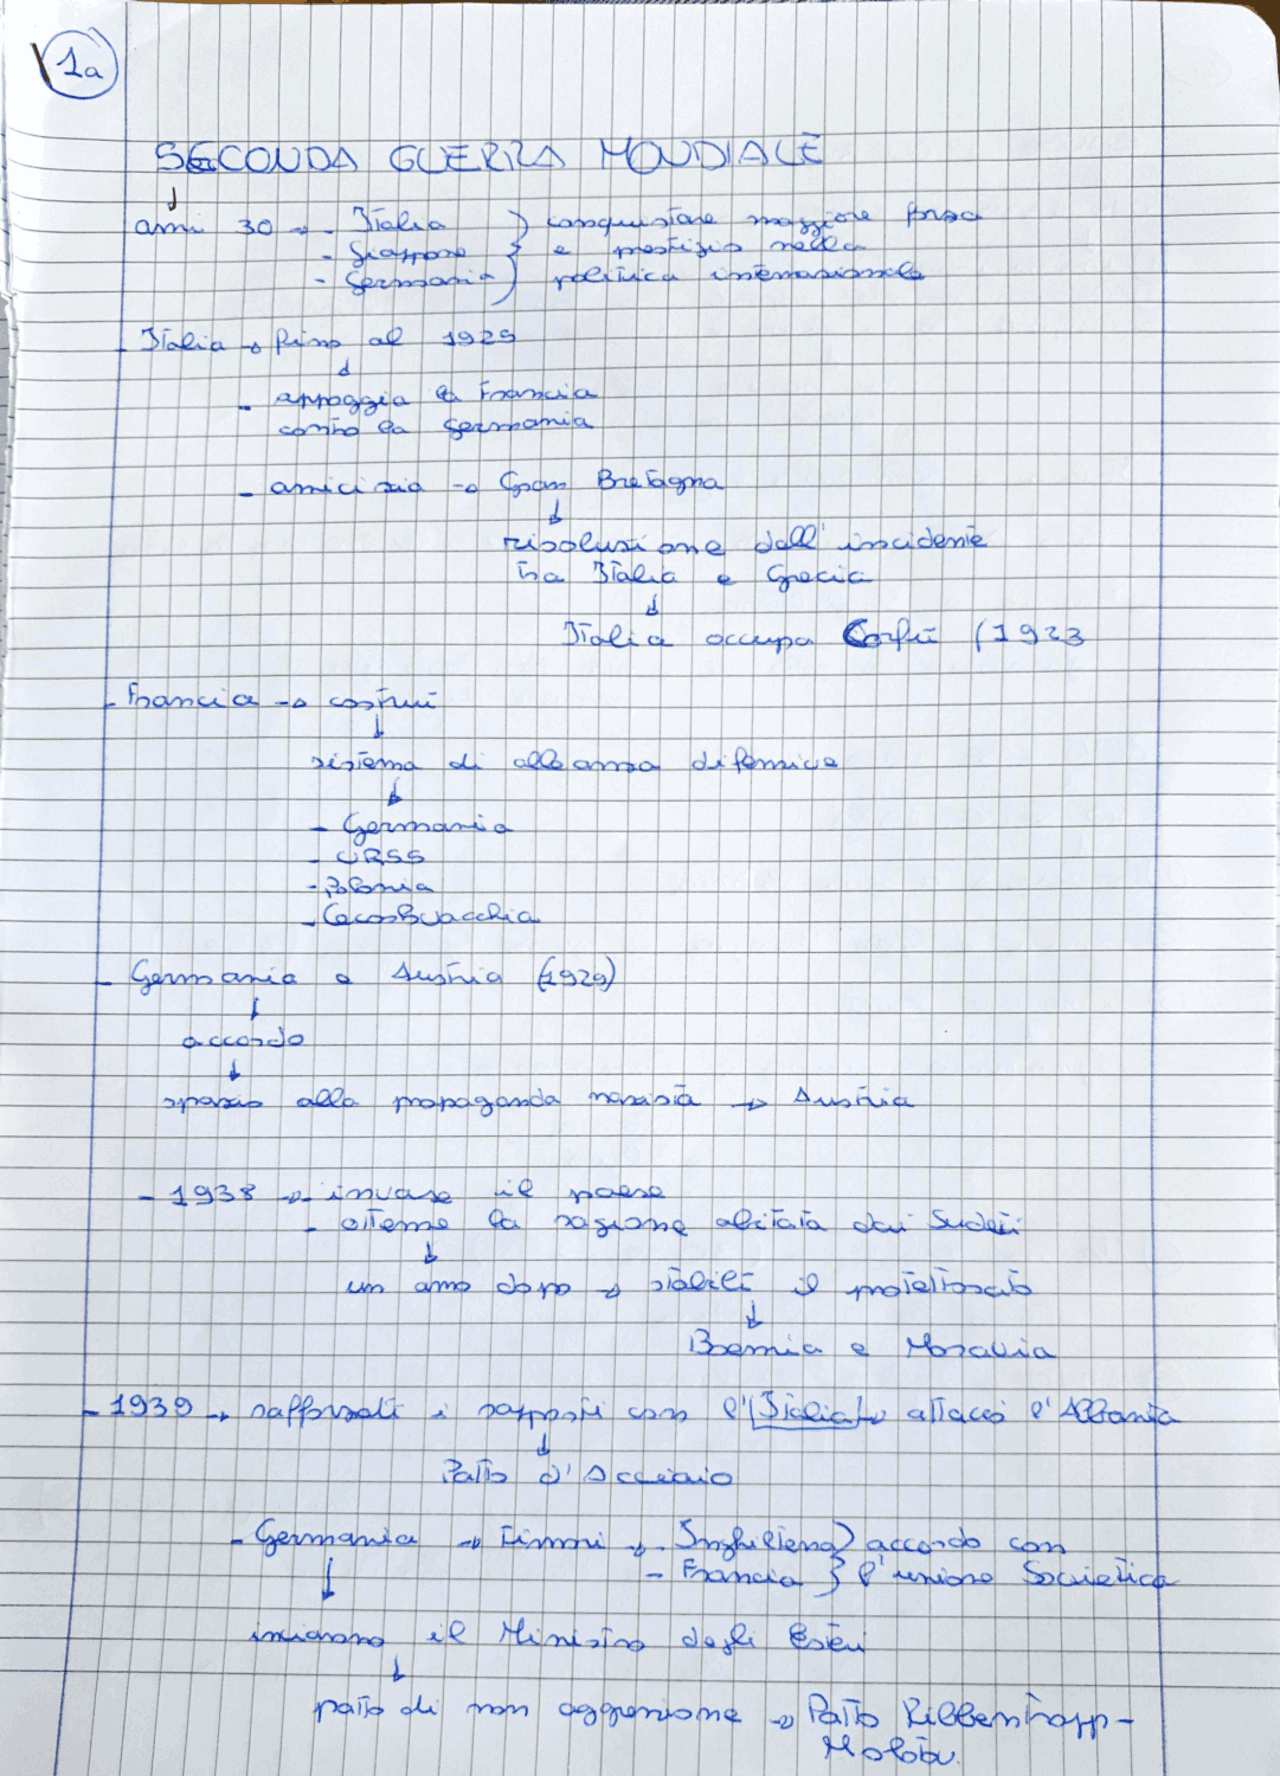 1a
SECONDA GUERRA MONDIALE
↓
anni 30 → - Italia } conquistare maggiore forza
- Giappone } e prestigio nella
- Germania } politica internazionale
- Italia → fino al 1925
↓
- appoggia la Francia
contro la Germania
- amicizia → Gran Bretagna
↓
risoluzione dell'incidente
tra Italia e Grecia
↓
Italia occupa Corfù (1923
- Francia → costruì
↓
sistema di alleanza difensiva
↓
- Germania
- URSS
- Polonia
- Cecoslovacchia
- Germania e Austria (1929)
↓
accordo
↓
spazio alla propaganda nazista → Austria
- 1938 → - invase il paese
- ottenne la ragione abitata dai Sudeti
↓
un anno dopo → stabilì il protettorato
↓
Boemia e Moravia
- 1939 → rafforzati i rapporti con l'Italia → attaccò l'Albania
↓
Patto d'Acciaio
- Germania → timori → - Inghilterra } accordo con
- Francia } l'unione Sovietica
↓
inviarono il Ministro degli Esteri
↓
patto di non aggressione → Patto Ribbentropp-
Molotov.